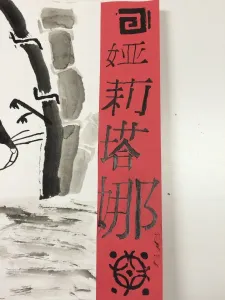 娅莉塔娜